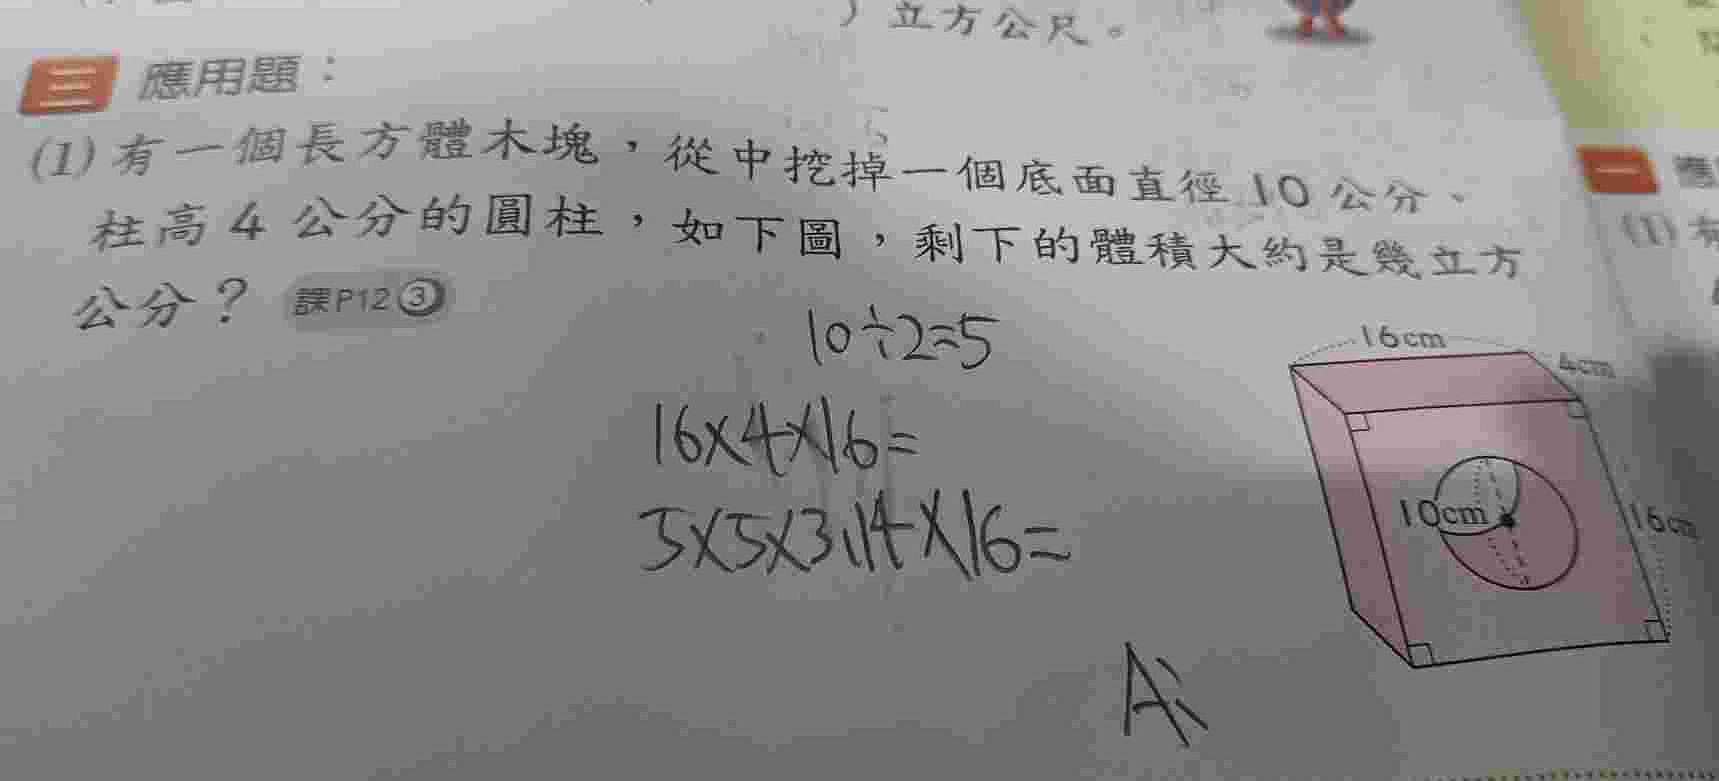 ）立方公尺。
三 應用題：
(1)有一個長方體木塊，從中挖掉一個底面直徑10公分、
柱高4公分的圓柱，如下圖，剩下的體積大約是幾立方
公分？ 課P12③
10÷2=5
16×4×16=
5×5×3.14×16=
A:
16cm
4cm
10cm
16cm
一 應
(1)有